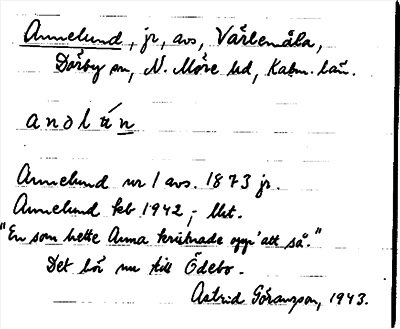 Annelund, jr, avs, Värlemåla,
Dörby sn, N. Möre hd, Kalm. län.
anəlún
Annelund nr 1 avs. 1873 jr.
Annelund kb 1942,
"En som hette Anna kristnade opp' att så."
Det hör nu till Ödebo.
Astrid Göransson, 1943.